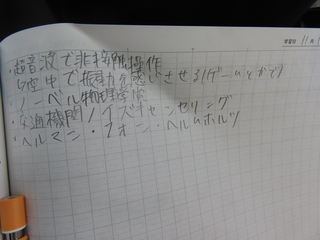 学習日 11月
・超音波で非接触操作
↳空中で振動を感じさせる(ゲームとかで)
・ノーベル物理学賞
・交通機関ノイズキャンセリング
・ヘルマン・フォン・ヘルムホルツ